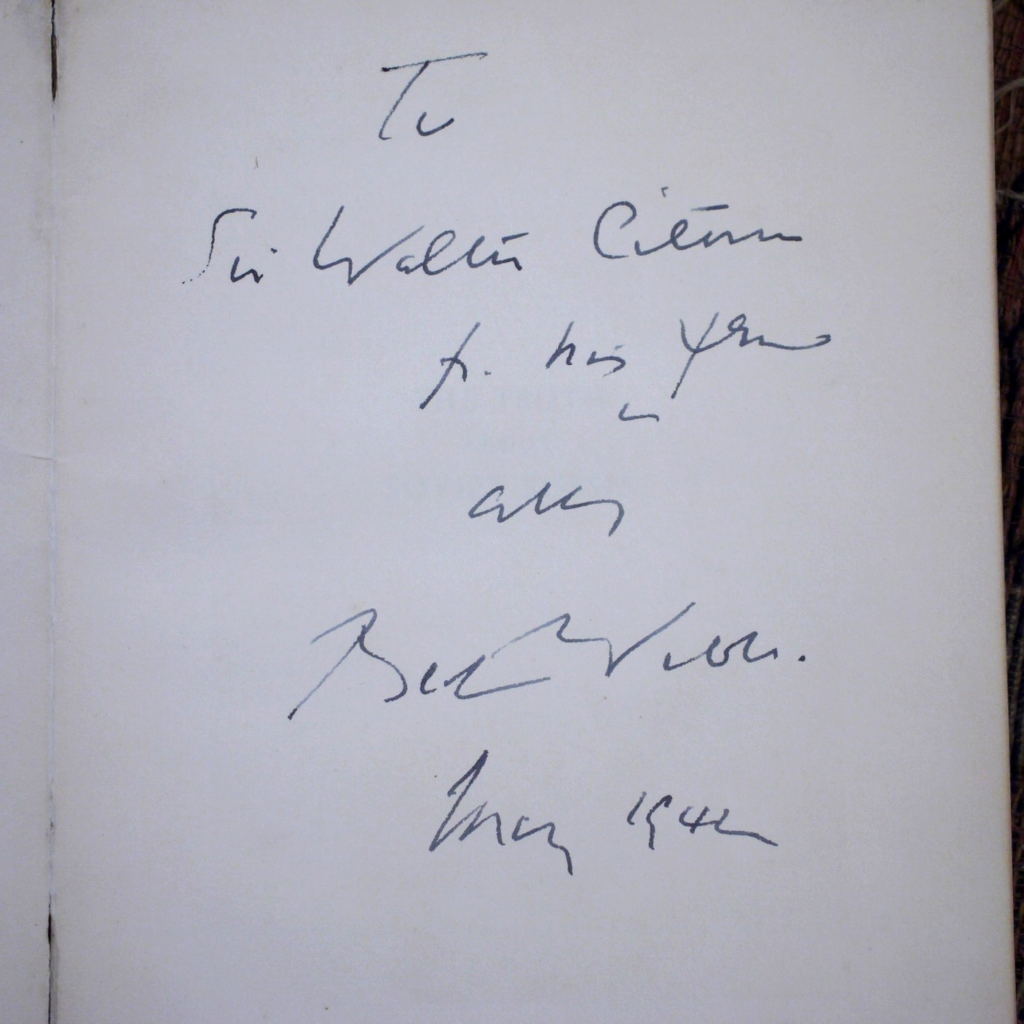 To
Sir Walter Citrine
fr. his
ally
Beatrice Webb.
May 1942